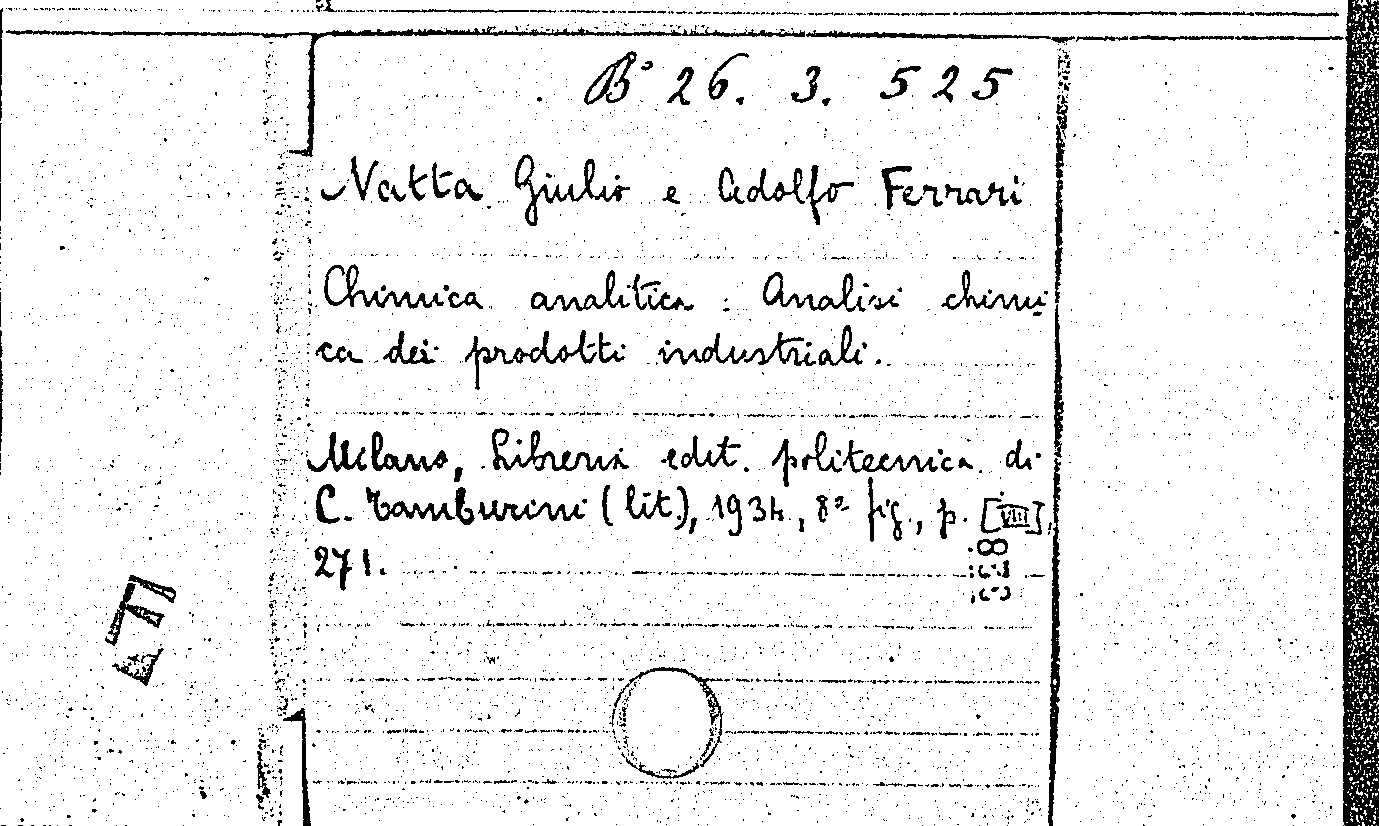 B° 26. 3. 525
Natta Giulio e Adolfo Ferrari
Chimica analitica : Analisi chimi
ca dei prodotti industriali.
Milano, Libreria edit. politecnica di
C. Tamburini (lit.), 1934, 8° fig., p. [VIII],
271.